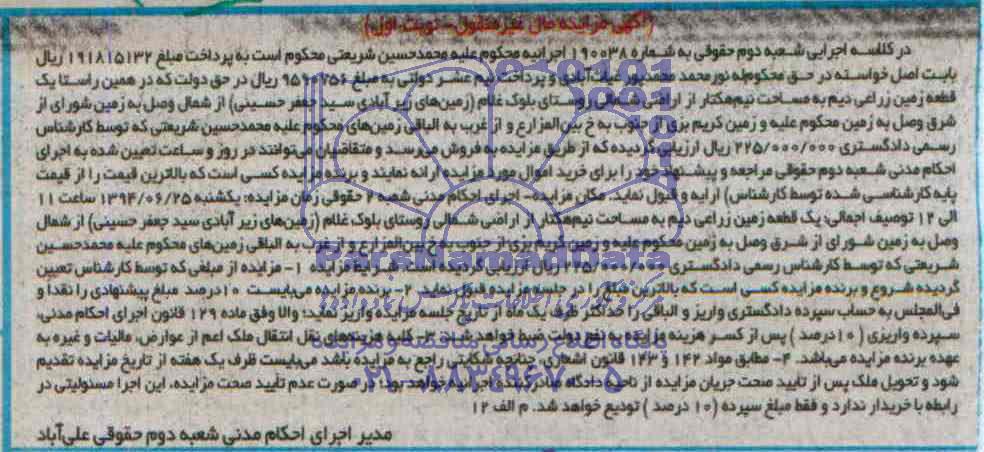 (آگهی مزایده مال غیرمنقول - نوبت اول)
در کلاسه اجرایی شعبه دوم حقوقی به شماره ۱۹۰۰۳۸ اجرائیه محکوم علیه محمدحسین شریعتی محکوم است به پرداخت مبلغ ۱۹۱۸۱۵۱۳۲ ریال
بابت اصل خواسته در حق محکوم‌له نورمحمد محمدپور غیاث‌آبادی و پرداخت نیم عشر دولتی به مبلغ ۹۵۹۰۷۵۶ ریال در حق دولت که در همین راستا یک
قطعه زمین زراعی دیم به مساحت نیم‌هکتار از اراضی شمالی روستای بلوک غلام (زمین‌های زیر آبادی سید جعفر حسینی) از شمال وصل به زمین شورای از
شرق وصل به زمین محکوم علیه و زمین کریم بری از جنوب به خ بین‌المزارع و از غرب به الباقی زمین‌های محکوم علیه محمدحسین شریعتی که توسط کارشناس
رسمی دادگستری ۲۲۵/۰۰۰/۰۰۰ ریال ارزیابی گردیده که از طریق مزایده به فروش می‌رسد و متقاضیان می‌توانند در روز و ساعت تعیین شده به اجرای
احکام مدنی شعبه دوم حقوقی مراجعه و پیشنهاد خود را برای خرید اموال مورد مزایده ارائه نمایند و برنده مزایده کسی است که بالاترین قیمت را از قیمت
پایه کارشناسی شده توسط کارشناس) ارایه و قبول نماید. مکان مزایده- اجرای احکام مدنی شعبه ۲ حقوقی زمان مزایده: یکشنبه ۱۳۹۴/۰۶/۲۵ ساعت ۱۱
الی ۱۲ توصیف اجمالی: یک قطعه زمین زراعی دیم به مساحت نیم‌هکتار از اراضی شمالی روستای بلوک غلام (زمین‌های زیر آبادی سید جعفر حسینی) از شمال
وصل به زمین شورای از شرق وصل به زمین محکوم علیه و زمین کریم بری از جنوب به خ بین‌المزارع و از غرب به الباقی زمین‌های محکوم علیه محمدحسین
شریعتی که توسط کارشناس رسمی دادگستری ۲۲۵/۰۰۰/۰۰۰ ریال ارزیابی گردیده است. شرایط مزایده ۱- مزایده از مبلغی که توسط کارشناس تعیین
گردیده شروع و برنده مزایده کسی است که بالاترین قیمت را در جلسه مزایده قبول نماید. ۲- برنده مزایده می‌بایست ۱۰ درصد مبلغ پیشنهادی را نقدا و
فی‌المجلس به حساب سپرده دادگستری واریز و الباقی را حداکثر ظرف یک ماه از تاریخ جلسه مزایده واریز نماید؛ والا وفق ماده ۱۲۹ قانون اجرای احکام مدنی،
سپرده واریزی (۱۰ درصد) پس از کسر هزینه مزایده به نفع دولت ضبط خواهد شد. ۳- کلیه هزینه‌های نقل انتقال ملک اعم از عوارض، مالیات و غیره به
عهده برنده مزایده می‌باشد. ۴- مطابق مواد ۱۴۲ و ۱۴۳ قانون اشعاری، چنانچه شکایتی راجع به مزایده باشد می‌بایست ظرف یک هفته از تاریخ مزایده تقدیم
شود و تحویل ملک پس از تایید صحت جریان مزایده از ناحیه دادگاه صادرکننده اجرائیه خواهد بود. ۵- در صورت عدم تأیید صحت مزایده، این اجرا مسئولیتی در
رابطه با خریدار ندارد و فقط مبلغ سپرده (۱۰ درصد) تودیع خواهد شد. م الف ۱۲
مدیر اجرای احکام مدنی شعبه دوم حقوقی علی‌آباد
ParsNamadData
پایگاه اطلاع رسانی مناقصه و مزایده
۰۲۱-۸۸۳۴۹۶۷۰-۵